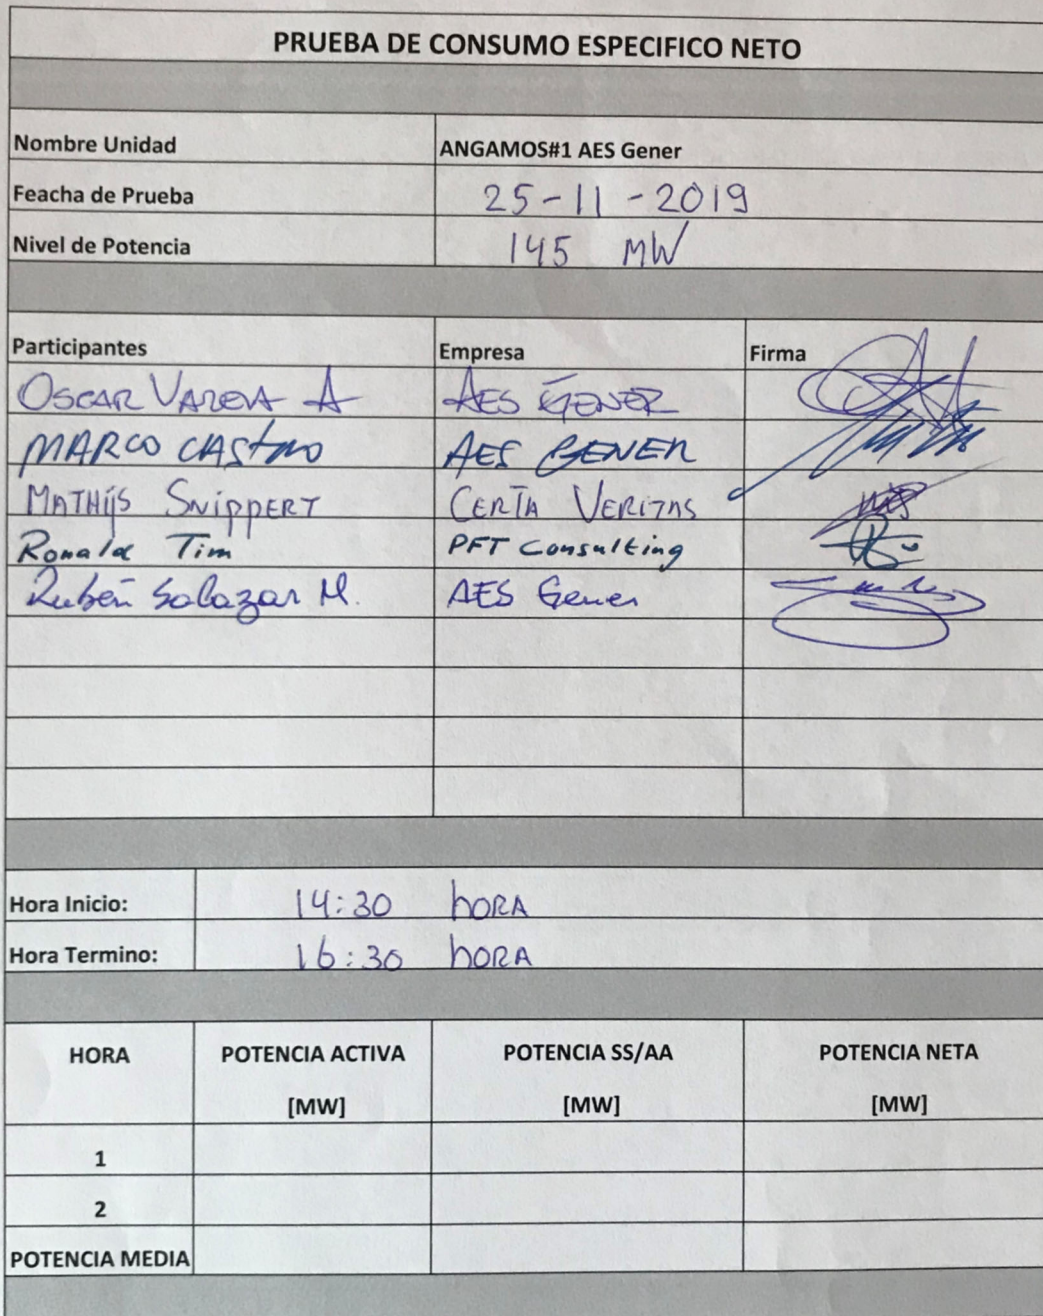 PRUEBA DE CONSUMO ESPECIFICO NETO
Nombre Unidad ANGAMOS#1 AES Gener
Feacha de Prueba 25-11-2019
Nivel de Potencia 145 MW
Participantes Empresa Firma
OSCAR VARELA A AES GENER
MARCO CASTRO AES GENER
MATHIJS SNIPPERT CERTA VERITAS
Ronald Tim PFT Consulting
Rubén Salazar M. AES Gener
Hora Inicio: 14:30 hORA
Hora Termino: 16:30 hORA
HORA POTENCIA ACTIVA POTENCIA SS/AA POTENCIA NETA
[MW] [MW] [MW]
1
2
POTENCIA MEDIA